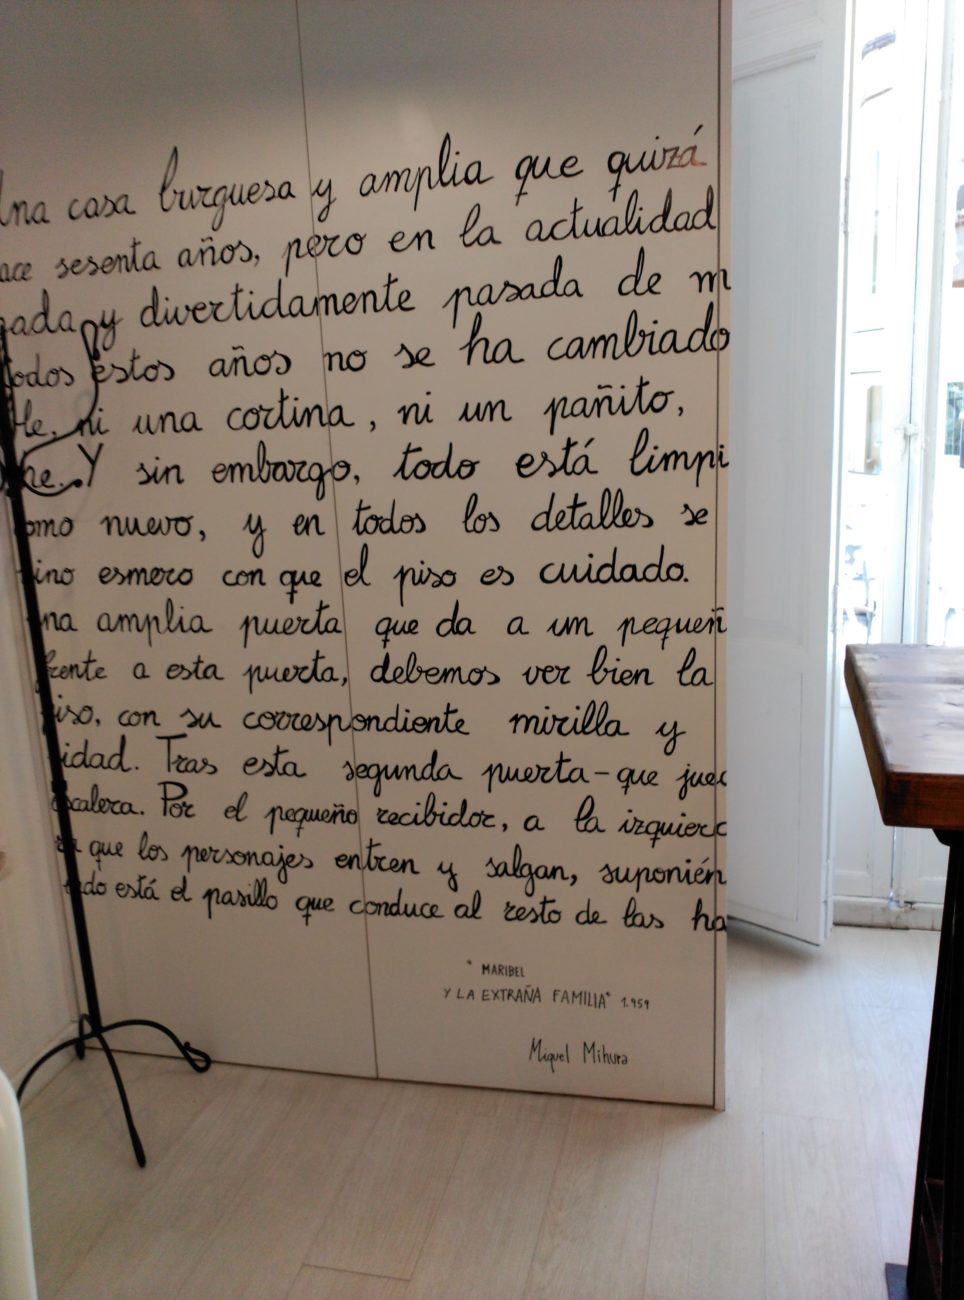 Una casa burguesa y amplia que quizá
sesenta años, pero en la actualidad
y divertidamente pasada de m
todos estos años no se ha cambiado
ni una cortina, ni un pañito,
Y sin embargo, todo está limpi
omo nuevo, y en todos los detalles se
ino esmero con que el piso es cuidado.
na amplia puerta que da a un pequeñ
frente a esta puerta, debemos ver bien la
iso, con su correspondiente mirilla y
idad. Tras esta segunda puerta-que juec
scalera. Por el pequeño recibidor, a la izquierd
que los personajes entren y salgan, suponién
do está el pasillo que conduce al resto de las ha
"MARIBEL
Y LA EXTRAÑA FAMILIA" 1.959
Miguel Mihura